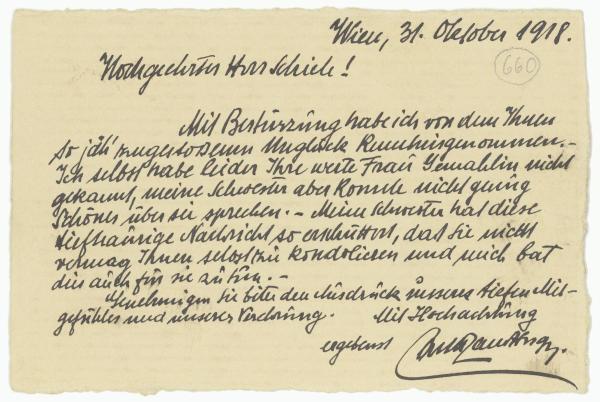 Wien, 31. Oktober 1918.
660
Hochgeehrter Herr Schiele!
Mit Bestürzung habe ich von dem Ihnen
so jäh zugestossenen Unglück Kenntnis genommen.-
Ich selbst habe leider Ihre werte Frau Gemahlin nicht
gekannt, meine Schwester aber konnte nicht genug
Schönes über sie sprechen. - Meine Schwester hat diese
tieftraurige Nachricht so erschüttert, daß sie nicht
vermag Ihnen selbst zu kondolieren und mich bat
dies auch für sie zu tun. -
Genehmigen Sie bitte den Ausdruck unseres tiefen Mit-
gefühles und unserer Verehrung.
Mit Hochachtung
ergebenst